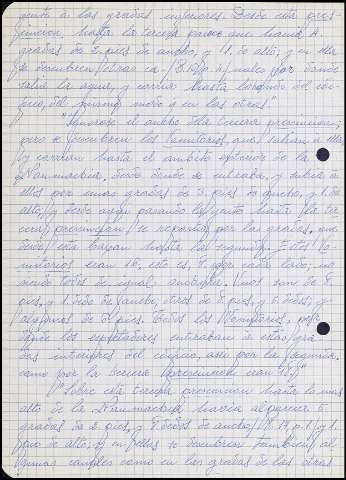 gente á las gradas inferiores. Desde esta pres-
cincion, hasta la tercera parece que había
gradas de 2 pies de ancho, y 11 de alto; y en ella
se descubren otras canales por donde
salia la agua, y corria hasta lo del edi-
ficio, del mismo modo q en las otras"
"Ignorase el ancho de la tercera precincion;
pero se descubren los Vomitorios, que salian á ella
y corrian hasta el ambito exterior de la
Naumachia, desde donde se entraba, y subia á
ellos por unas gradas de 3 pies de ancho, y 1 de
alto, y desde aqui pasando la gente hasta la ter-
cera precincion se repartia por las gradas, que
desde esta baxan hasta la segunda. Estos vo-
mitorios eran 16, esto es, 8 por cada lado, no
siendo todos de igual anchura. Unos son de 8
pies, y 1 dedo de ancho, otros de 8 pies, y 6 dedos, y
algunos de 9 pies. Todos los Vomitorios, por
donde los espectadores entraban á estas gra-
das interiores del edificio, asi por la segunda,
como por la tercera Precincion eran"
"Sobre esta tercera precincion hasta lo mas
alto de la Naumachia havia al parecer
gradas de 2 pies, y 8 dedos de ancho, y 1
pie de alto; y en ellas se descubren tambien al-
gunas canales como en las gradas de las otras